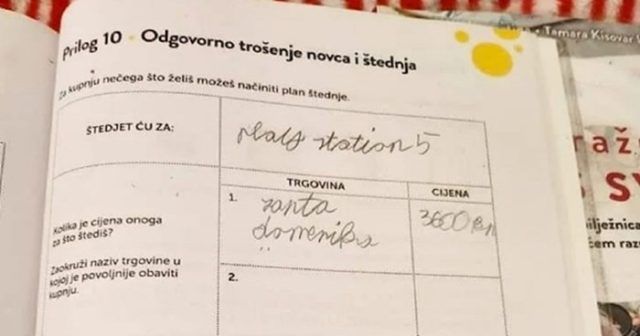 Prilog 10 Odgovorno trošenje novca i štednja
Za kupnju nečega što želiš možeš načiniti plan štednje.
ŠTEDJET ĆU ZA:
plays station 5
TRGOVINA
CIJENA
1.
santa
domenika
3600 kn
Kolika je cijena onoga
za što štediš?
Zaokruži naziv trgovine u
kojoj je povoljnije obaviti
kupnju.
2.
Tamara Kisovar
raž
SV
ilježnica
čem raz